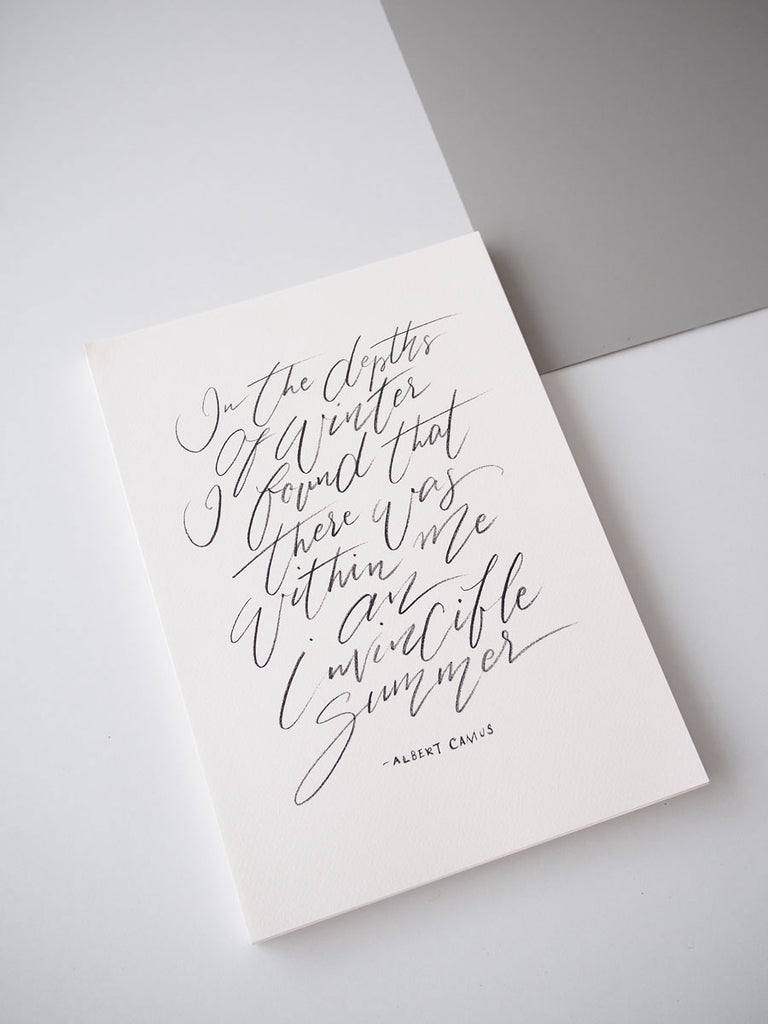 In the depths
of Winter
I found that
there was
within me
an
invincible
summer
-ALBERT CAMUS